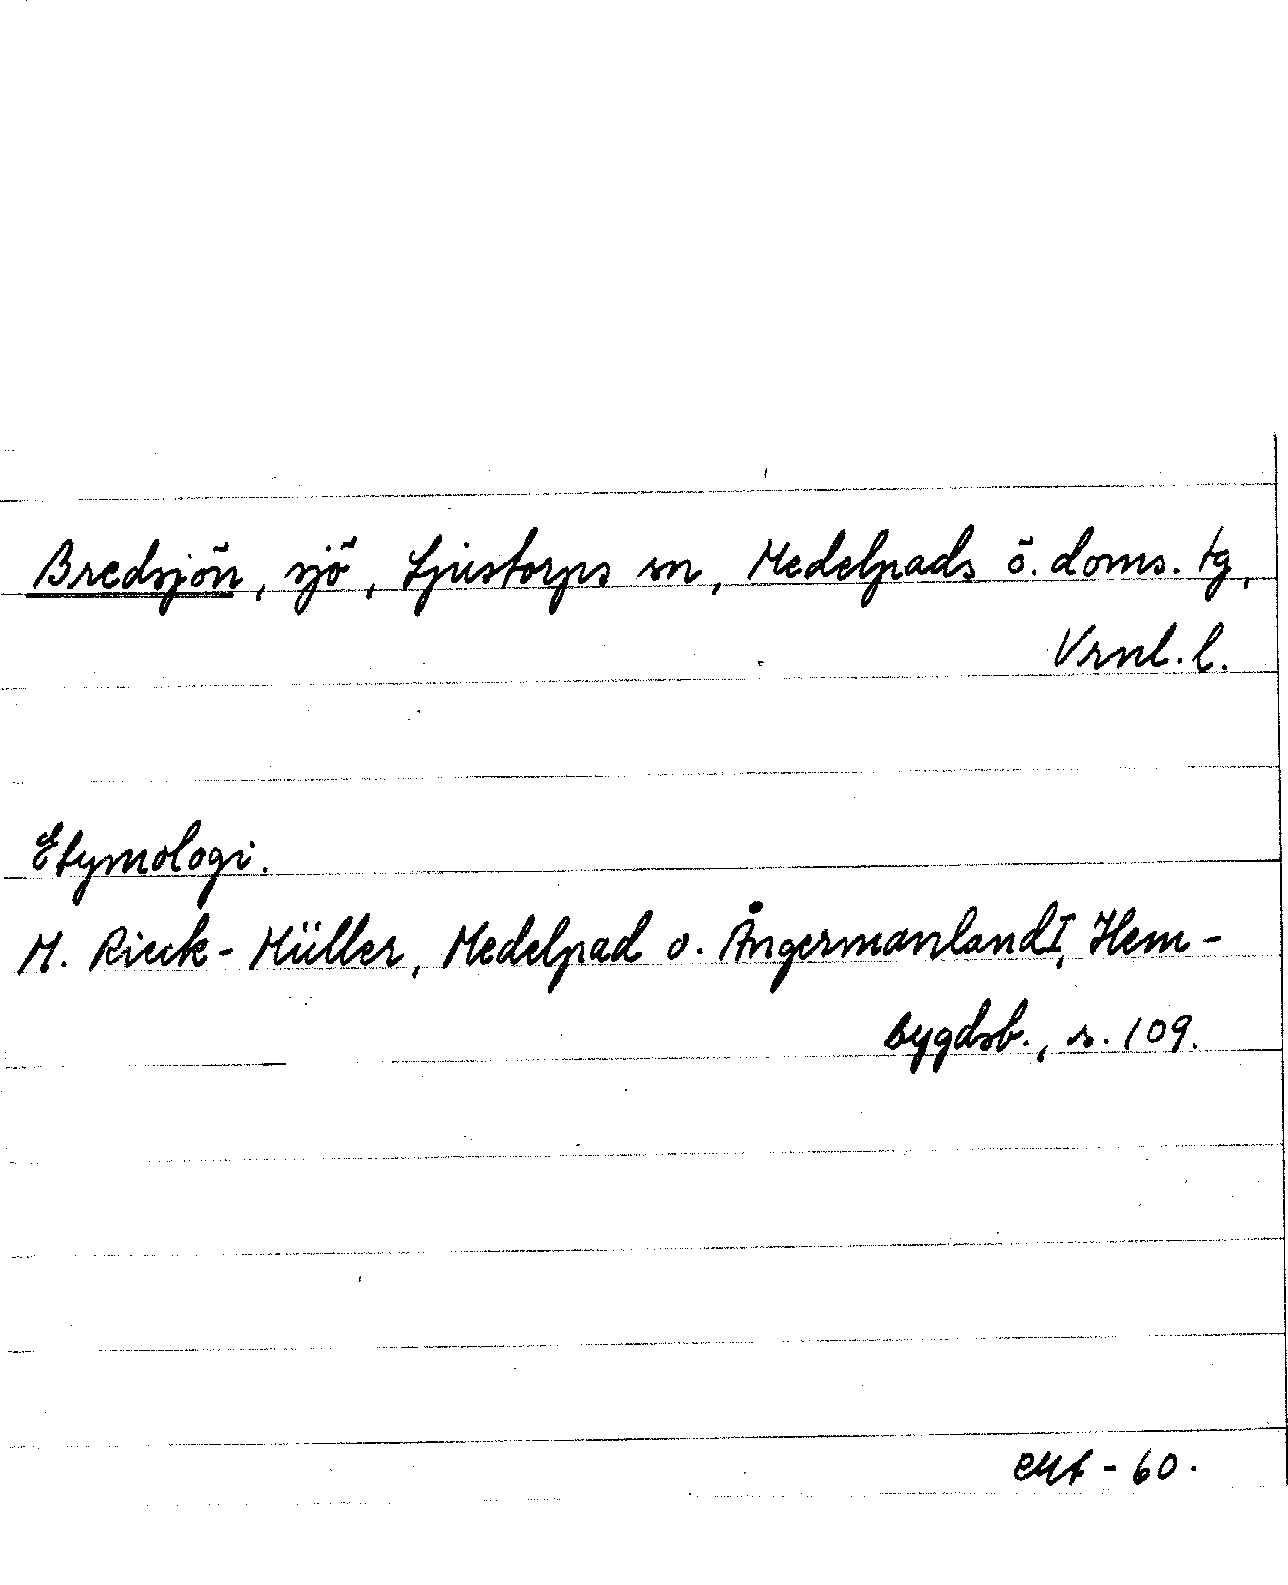 Bredsjön, sjö, Ljustorps sn, Medelpads ö. doms. tg,
Vrnl. l.
Etymologi.
M. Rieck-Müller, Medelpad o. Ångermanland I, Hem-
bygdsb., s. 109.
EMt - 60.